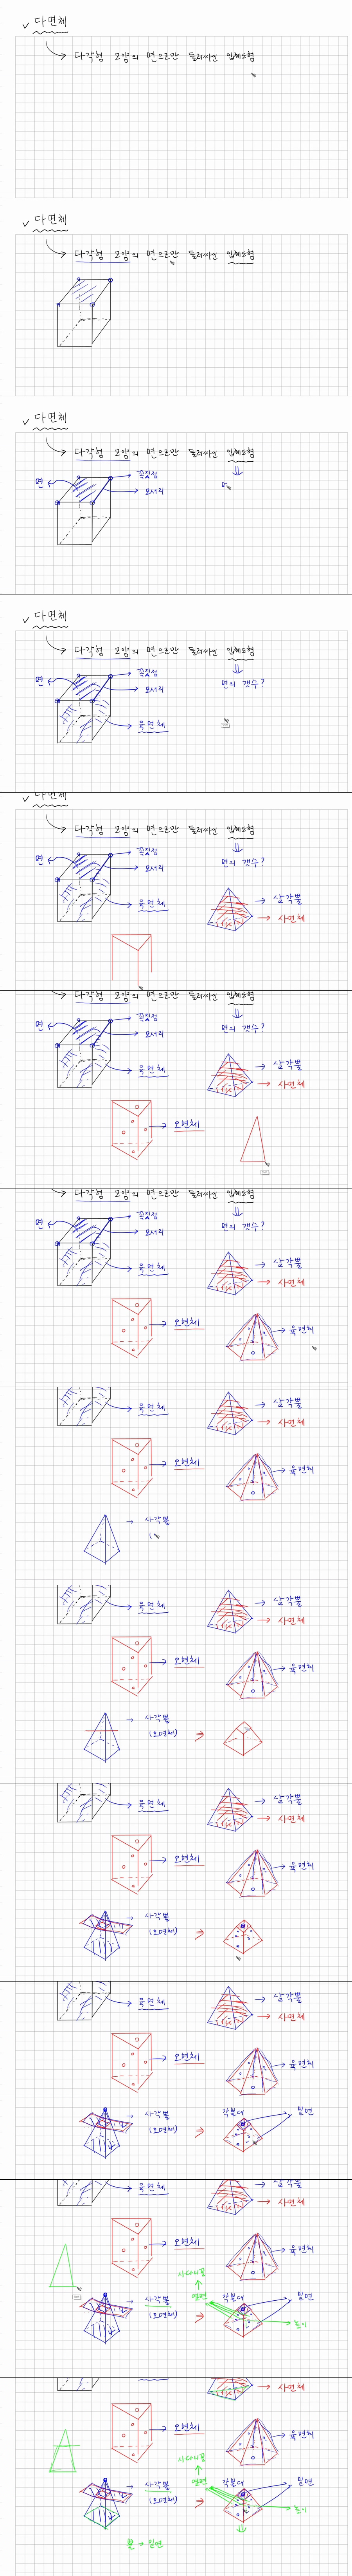 ✓ 다면체
다각형 모양의 면으로만 둘러싸인 입체도형
✓ 다면체
다각형 모양의 면으로만 둘러싸인 입체도형
✓ 다면체
다각형 모양의 면으로만 둘러싸인 입체도형
면 꼭짓점
모서리
✓ 다면체
다각형 모양의 면으로만 둘러싸인 입체도형
면 꼭짓점 면의 갯수?
모서리
육면체
다면체
다각형 모양의 면으로만 둘러싸인 입체도형
면 꼭짓점 면의 갯수?
모서리
육면체 삼각뿔
사면체
다각형 모양의 면으로만 둘러싸인 입체도형
면 꼭짓점 면의 갯수?
모서리
육면체 삼각뿔
사면체
오면체
다각형 모양의 면으로만 둘러싸인 입체도형
면 꼭짓점 면의 갯수?
모서리
육면체 삼각뿔
사면체
오면체 육면체
육면체 삼각뿔
사면체
오면체 육면체
사각뿔
(
육면체 삼각뿔
사면체
오면체 육면체
사각뿔
(오면체)
육면체 삼각뿔
사면체
오면체 육면체
사각뿔
(오면체)
육면체 삼각뿔
사면체
오면체 육면체
사각뿔 각뿔대 밑면
(오면체)
육면체 삼각뿔
사면체
오면체 육면체
사다리꼴
사각뿔 옆면 각뿔대 밑면
(오면체) 높이
사면체
오면체 육면체
사다리꼴
사각뿔 옆면 각뿔대 밑면
(오면체) 높이
뿔 → 밑면